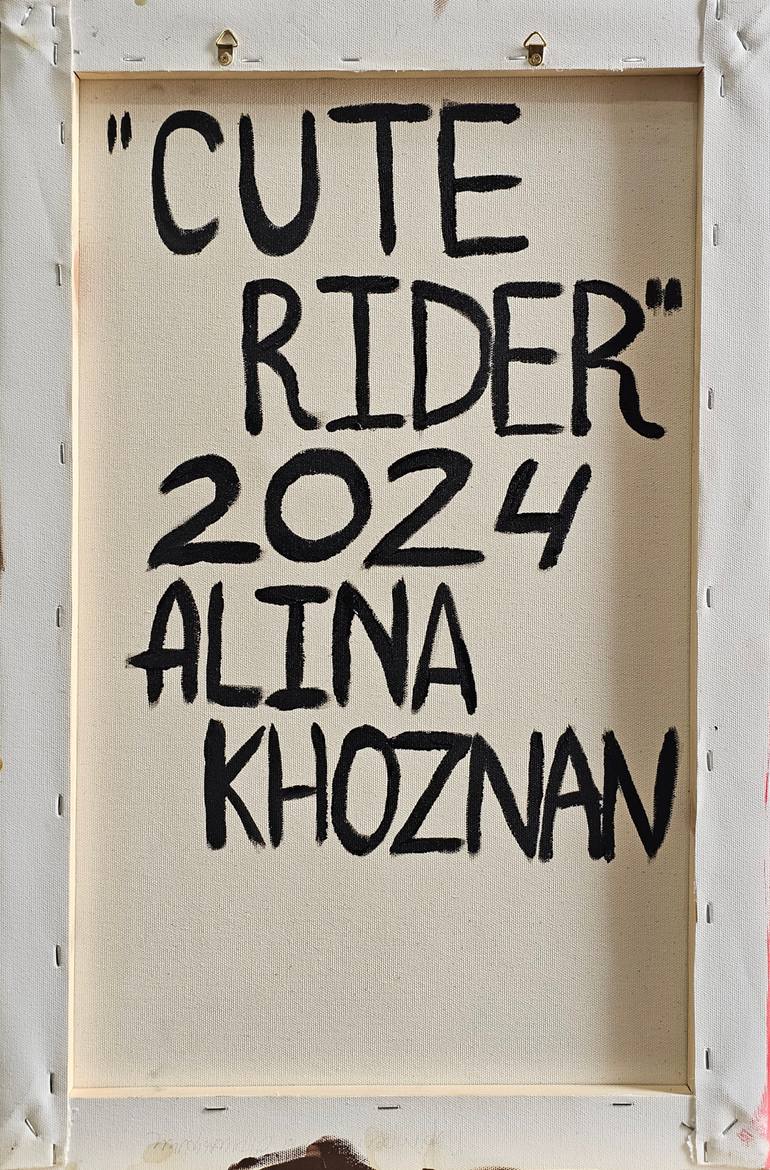 "CUTE
RIDER"
2024
ALINA
KHOZNAN